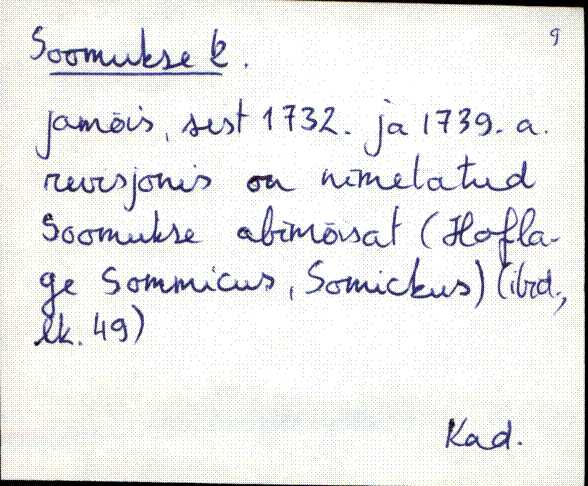 9
Soomukse k.
jamõis, sest 1732. ja 1739. a.
revisjonis on nimetatud
Soomukse abimõisat (Hofla-
ge Sommicus, Somickus) (ibid.,
lk. 49)
Kad.